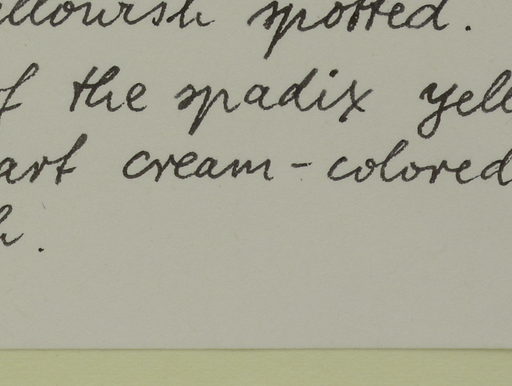 ellowish spotted.
f the spadix yell
art cream-colored
h.